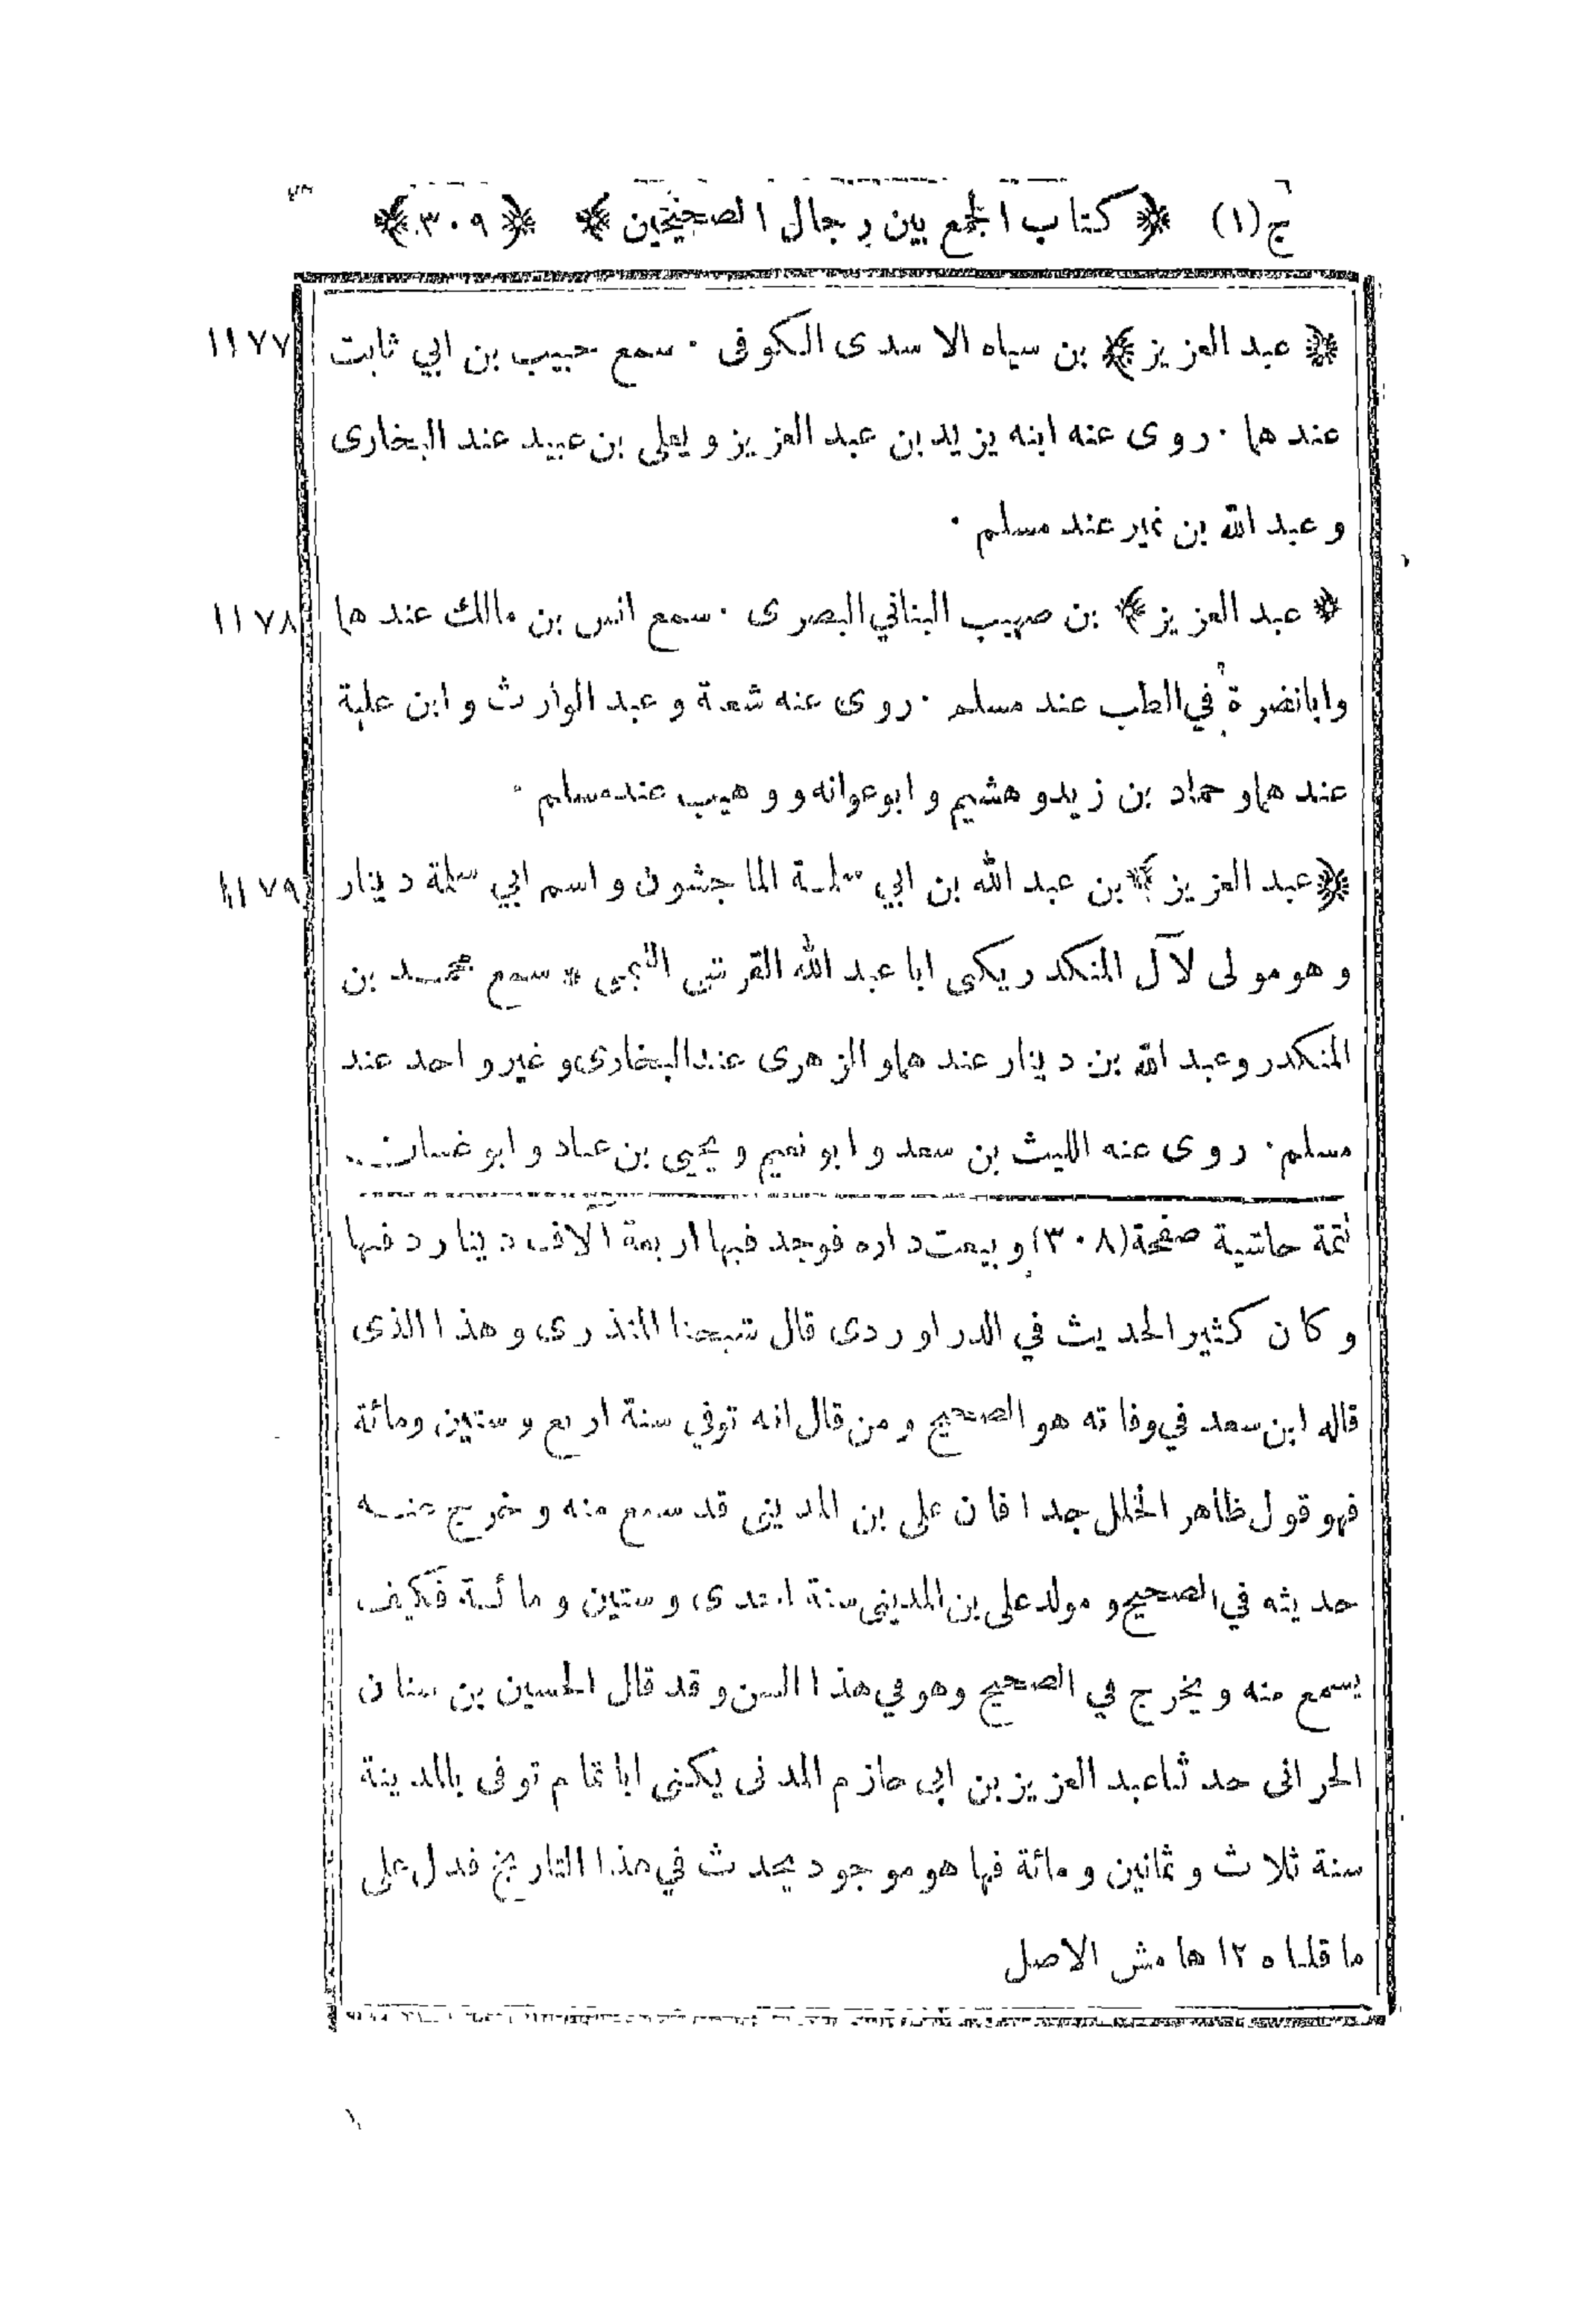 ج (١) ﴿ كتاب الجمع بين رجال الصحيحين ﴾ ﴿ ٣٠٩ ﴾
﴿ عبد العزيز ﴾ بن سياه الاسدى الكوفى ٠ سمع حبيب بن ابي ثابت ١١٧٧
عندهما ٠ روى عنه ابنه يزيد بن عبد العزيز ويعلى بن عبيد عند البخارى
وعبد الله بن نمير عند مسلم ٠
﴿ عبد العزيز ﴾ بن صهيب البناني البصرى ٠ سمع انس بن مالك عندهما ١١٧٨
وابانضرة في الطب عند مسلم ٠ روى عنه شعبة وعبد الوارث وابن علية
عندهما وحماد بن زيد وهشيم وابوعوانه ووهيب عند مسلم ٠
﴿ عبد العزيز ﴾ بن عبد الله بن ابي سلمة الماجشون واسم ابي سلمة دينار ١١٧٩
وهو مولى لآل المنكدر يكنى ابا عبد الله القرشى التيمى * سمع محمد بن
المنكدر وعبد الله بن دينار عندهما والزهرى عند البخارى وغير واحد عند
مسلم ٠ روى عنه الليث بن سعد وابو نعيم ويحيى بن عباد وابو غسان
تتمة حاشية صفحة (٣٠٨) وبيعت داره فوجد فيها اربعة آلاف دينار دفنها
وكان كثير الحديث في الدراوردى قال شيخنا المنذرى وهذا الذى
قاله ابن سعد في وفاته هو الصحيح ومن قال انه توفي سنة اربع وستين ومائة
فهو قول ظاهر الخلل جدا فان على بن المدينى قد سمع منه وخرج عنه
حديثه في الصحيح ومولد على بن المدينى سنة احدى وستين ومائة فكيف
يسمع منه ويخرج في الصحيح وهو في هذا السن وقد قال الحسين بن سنان
الحرانى حدثنا عبد العزيز بن ابى حازم المدنى يكنى ابا تمام توفى بالمدينة
سنة ثلاث وثمانين ومائة فها هو موجود يحدث في هذا التاريخ فدل على
ما قلناه ١٢ هامش الاصل